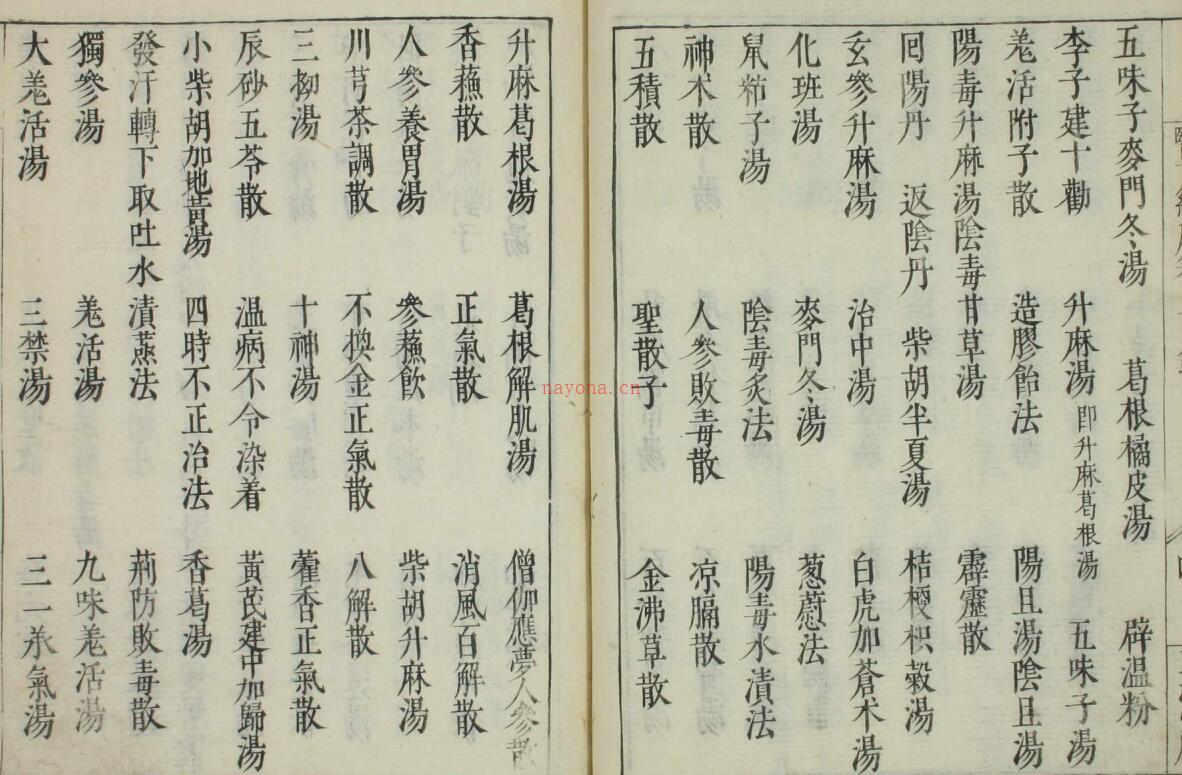 五味子麥門冬湯　葛根橘皮湯　辟温粉
李子建十勸　升麻湯即升麻葛根湯　五味子湯
羗活附子散　造膠飴法　陽旦湯陰旦湯
陽毒升麻湯陰毒甘草湯　霹靂散
回陽丹　返陰丹　柴胡半夏湯　桔梗枳縠湯
玄參升麻湯　治中湯　白虎加蒼术湯
化班湯　麥門冬湯　葱熨法
鼠粘子湯　陰毒炙法　陽毒水漬法
神术散　人參敗毒散　凉膈散
五積散　聖散子　金沸草散
升麻葛根湯　葛根解肌湯　僧伽應夢人參散
香蘓散　正氣散　消風百解散
人參養胃湯　參蘓飲　柴胡升麻湯
川芎茶調散　不換金正氣散　八解散
三拗湯　十神湯　藿香正氣散
辰砂五苓散　温病不令染着　黃芪建中加歸湯
小柴胡加地黃湯　四時不正治法　香葛湯
發汗轉下取吐水漬蒸法　荊防敗毒散
獨參湯　羗活湯　九味羗活湯
大羗活湯　三禁湯　三一承氣湯
nayona.cn